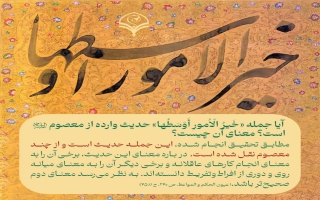 خیر الامور اوسطها
آیا جمله «خیرُ الاُمورِ أوسَطُها» حدیث وارده از معصوم
است؟ معنای آن چیست؟
مطابق تحقیق انجام شده، این جمله حدیث است و از چند
معصوم نقل شده است. در باره معنای این حدیث، برخی آن را به
معنای انجام کارهای عاقلانه و برخی دیگر آن را به معنای میانه
روی و دوری از افراط وتفریط دانسته‌اند. به نظر می‌رسد معنای دوم
صحیح‌تر باشد.